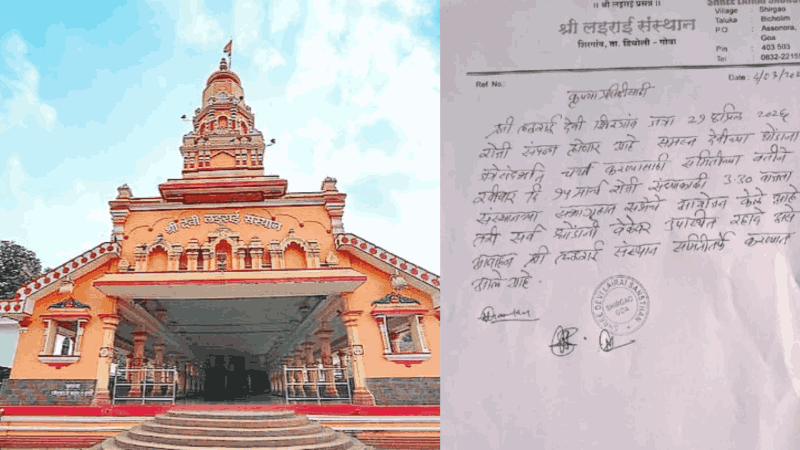 श्री देवी लइराई संस्थान
॥ श्री लइराई प्रसन्न ॥
श्री लइराई संस्थान
शिरगांव, ता. डिचोली - गोवा
SHREE LAIRAI
Village : Shirgao
Taluka : Bicholim
P.O : Assonora,
Goa
Pin : 403 503
Tel : 0832-2215
Ref No.:
Date : 4/03/202
कृपया प्रसिद्धीसाठी
श्री लइराई देवी शिरगांव जत्रा 21 एप्रिल 2026
रोजी संपन्न होणार आहे समस्त देवीच्या धोंडाना
चर्चा करण्यासाठी समितीच्या वतीने
रविवार दि १५ मार्च रोजी संध्याकाळी 3:30 वाजता
संस्थानच्या सभागृहात सभेचे आयोजन केले आहे
तरी सर्व धोंडानी वेळेवर उपस्थित रहावे असे
आवाहन श्री लइराई संस्थान समितीतर्फे करण्यात
आले आहे.
SHREE DEVI LAIRAI SANSTHAN
SHIRGAO
GOA